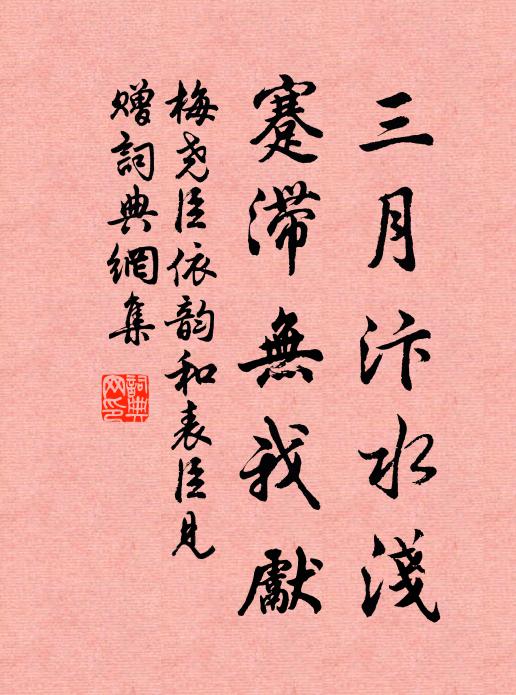 三月汴水淺
蹇滯無我獻
梅尧臣依韵和表臣見
贈詞典網集
詞典网印